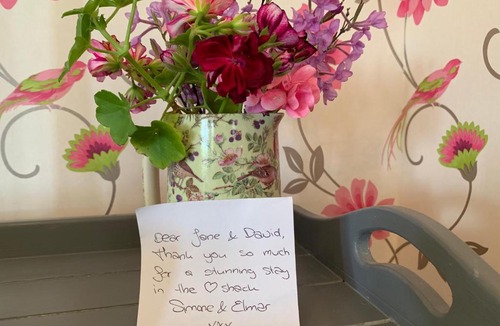 Dear Jane & David,
Thank you so much
for a stunning stay
in the ♡ shack
Simone & Elmar
xxx